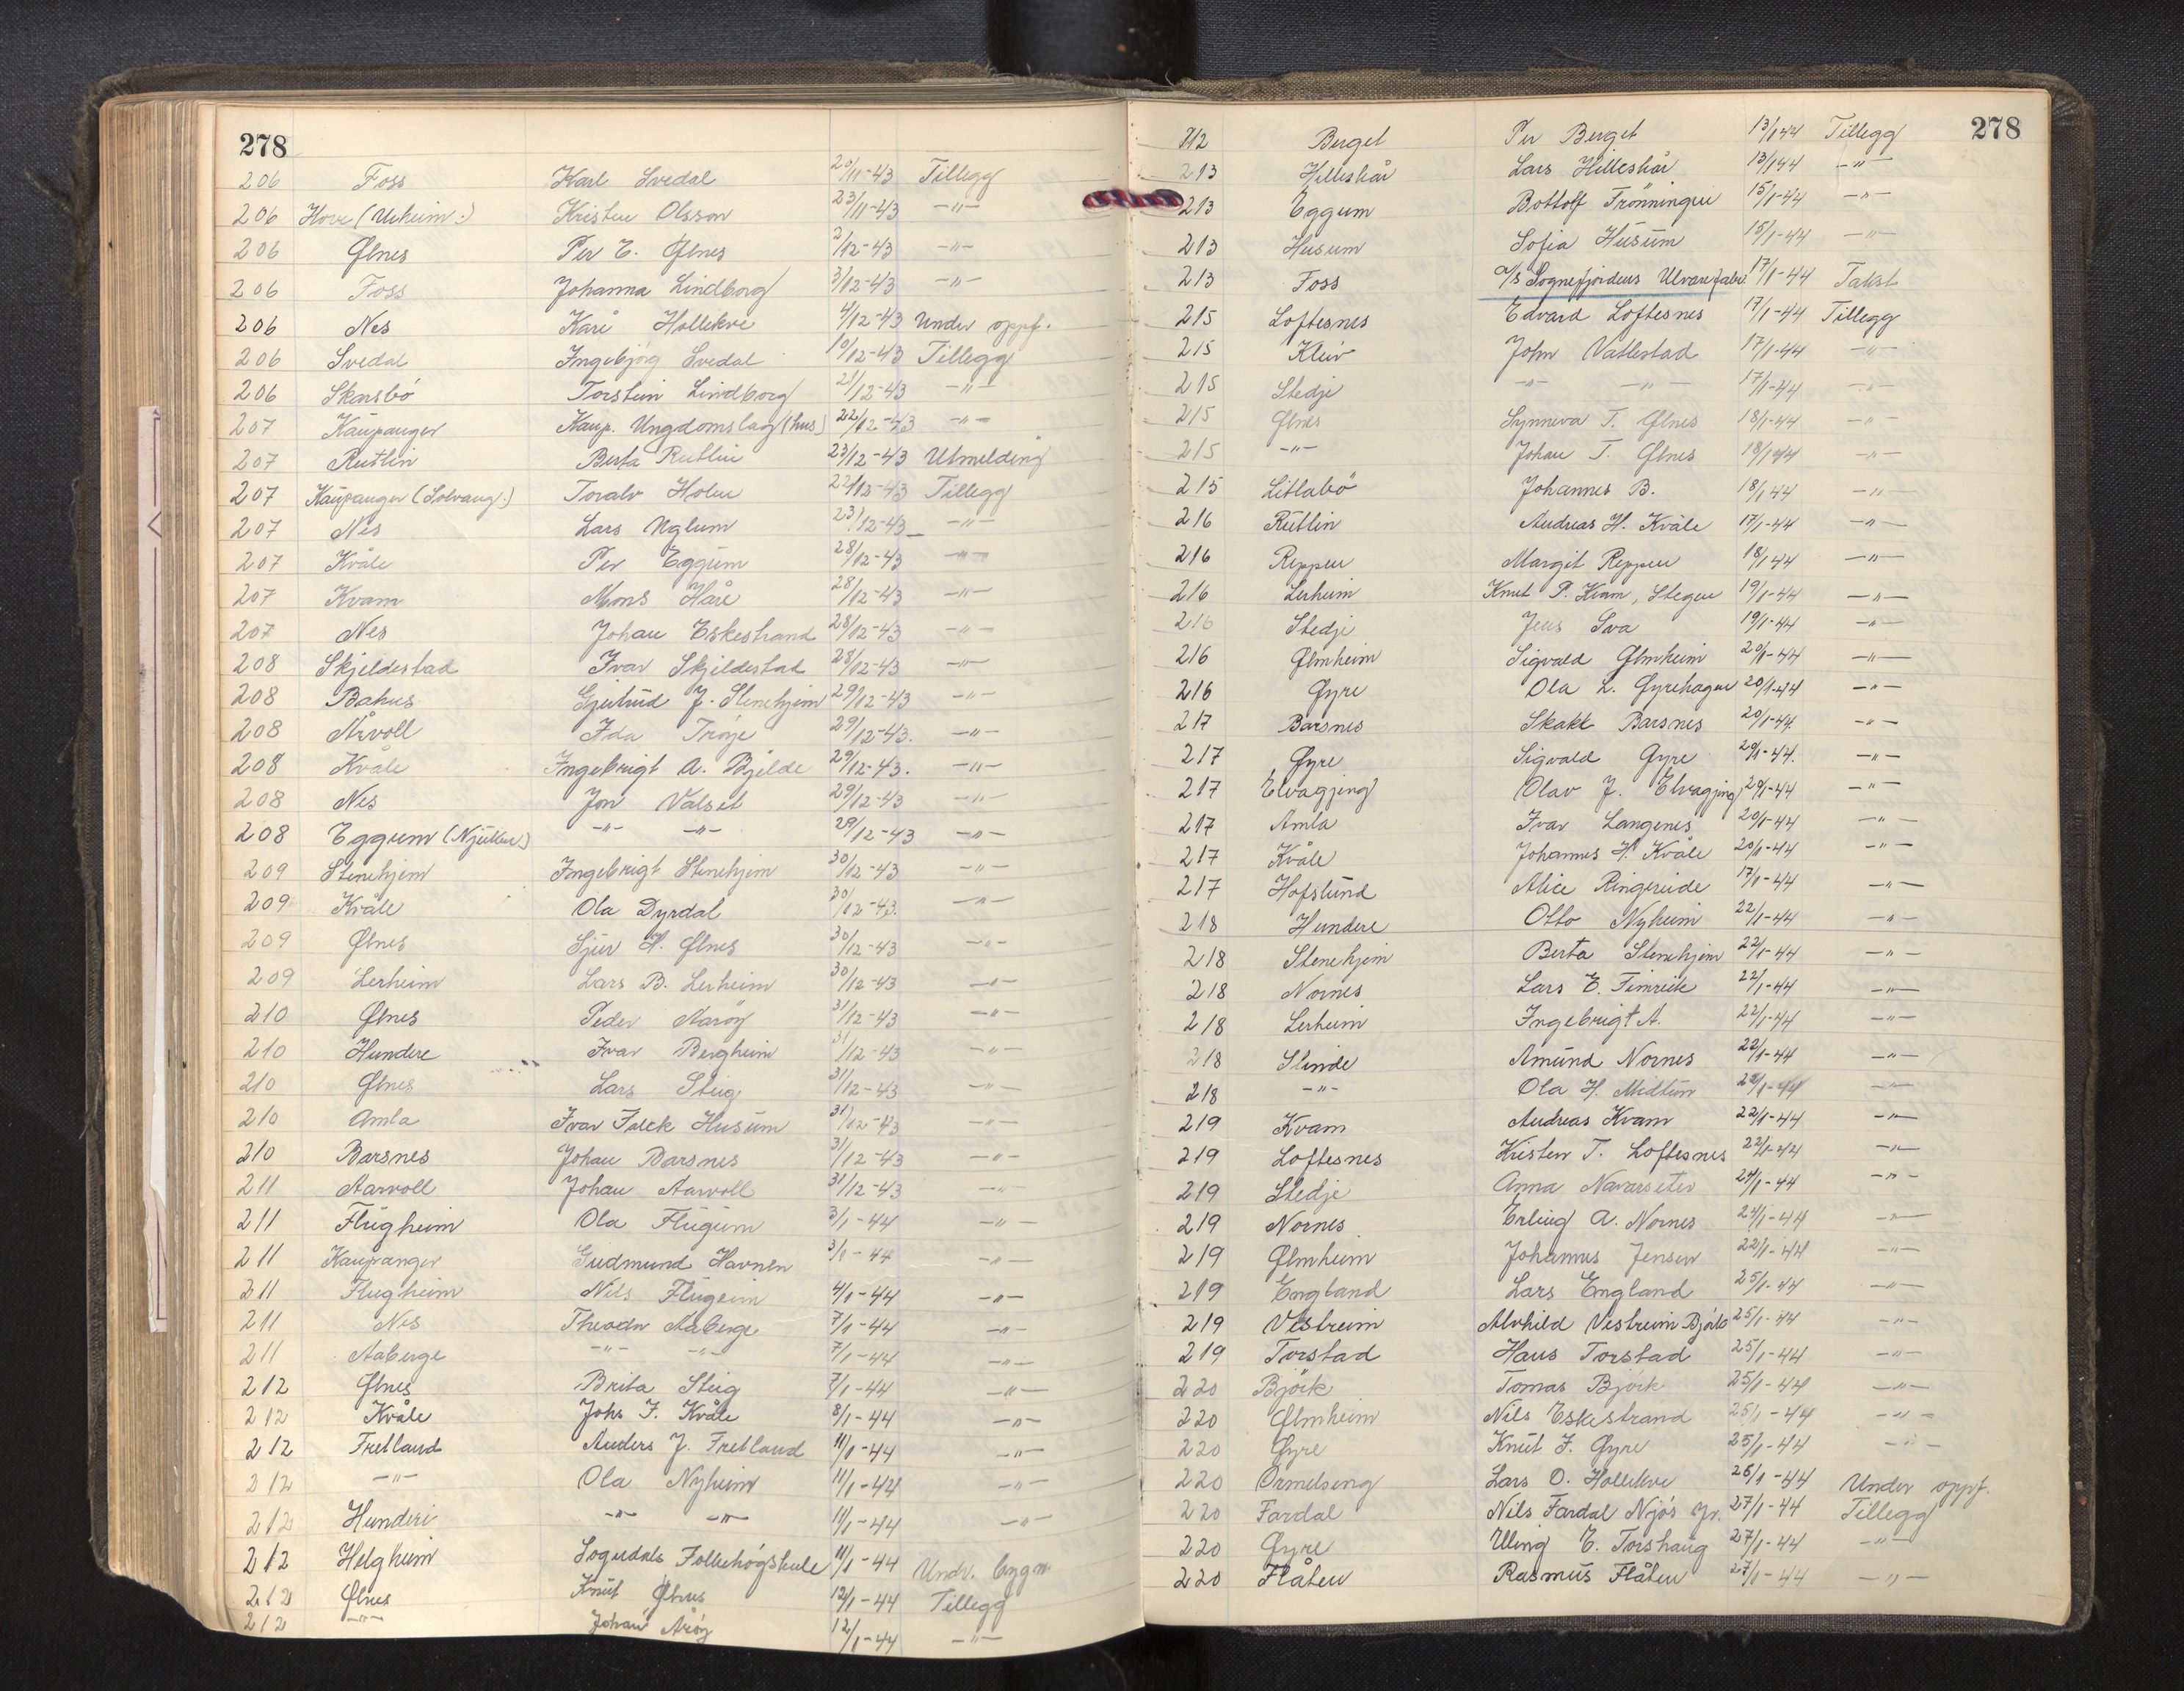 278
206 Foss Karl Svedal 20/11-43 Tillegg
206 Hove (Urheim.) Kristen Olsson 23/11-43 -"-
206 Ølnes Per E. Ølnes 2/12-43 -"-
206 Foss Johanna Lindborg 3/12-43 -"-
206 Nes Kåre Hollekve 4/12-43 Under oppf.
206 Svedal Ingebjørg Svedal 10/12-43 Tillegg
206 Skarsbö Torstein Lindborg 21/12-43 -"-
207 Kaupanger Kaup. Ungdomslag (hus) 22/12-43 -"-
207 Rutlin Berta Rutlin 23/12-43 Utmelding
207 Kaupanger (Solvang.) Toralv Holen 22/12-43 Tillegg
207 Nes Lars Uglum 23/12-43 -"-
207 Kvåle Per Eggum 28/12-43 -"-
207 Kvam Mons Håre 28/12-43 -"-
207 Nes Johan Eskestrand 28/12-43 -"-
208 Skjeldestad Ivar Skjeldestad 28/12-43 -"-
208 Bahus Gjertrud J. Stenehjem 29/12-43 -"-
208 Årvoll Ida Trøje 29/12-43. -"-
208 Kvåle Ingebrigt A. Bjelde 29/12-43. -"-
208 Nes Jon Valset 29/12-43 -"-
208 Eggum (Njuken) -"- -"- 29/12-43 -"-
209 Stenehjem Ingebrigt Stenehjem 30/12-43 -"-
209 Kvåle Ola Dyrdal 30/12-43. -"-
209 Ølnes Sjur H. Ølnes 30/12-43 -"-
209 Lerheim Lars B. Lerheim 30/12-43 -"-
210 Ølnes Peder Aarøy 31/12-43 -"-
210 Hundere Ivar Bergheim 31/12-43 -"-
210 Ølnes Lars Steig 31/12-43 -"-
210 Amla Ivar Falck Husum 31/12-43 -"-
210 Barsnes Johan Barsnes 31/12-43 -"-
211 Aarvoll Johan Aarvoll 31/12-43 -"-
211 Flugheim Ola Flugum 3/1-44 -"-
211 Kaupanger Gudmund Havnen 3/1-44 -"-
211 Flugheim Nils Flugeim 4/1-44 -"-
211 Nes Theodor Aaberge 7/1-44 -"-
211 Aaberge -"- -"- 7/1-44 -"-
212 Ølnes Brita Steig 7/1-44 -"-
212 Kvåle Johs I. Kvåle 8/1-44 -"-
212 Fretland Anders J. Fretland 11/1-44 -"-
212 -"- Ola Nyheim 11/1-44 -"-
212 Hunderi -"- -"- 11/1-44 -"-
212 Helgheim Sogndals Folkehøgskule 11/1-44 Und. bygn
212 Ølnes Knut Ølnes 12/1-44 Tillegg
212 -"- Johan Årøy 12/1-44 -"-
278
212 Berget Per Berget 13/1 44 Tillegg
213 Hilleshår Lars Hilleshår 13/1 44 -"-
213 Eggum Bottolf Frønningen 15/1-44 -"-
213 Husum Sofia Husum 15/1-44 -"-
213 Foss A/S Sognefjordens Ulvarefabr. 17/1-44 Takst
215 Loftesnes Edvard Loftesnes 17/1-44 Tillegg
215 Kleiv John Vatlestad 17/1-44 -"-
215 Stedje -"- -"- 17/1-44 -"-
215 Ølnes Synneva T. Ølnes 18/1-44 -"-
215 -"- Johan T. Ølnes 18/1 44 -"-
215 Litlabö Johannes B. 18/1 44 -"-
216 Rutlin Andreas H. Kvåle 17/1-44 -"-
216 Reppen Margit Reppen 18/1 44 -"-
216 Lerheim Knut P. Kvam, Stegen 19/1-44 -"-
216 Stedje Jens Sva 19/1-44 -"-
216 Ølmheim Sigvald Ølmheim 20/1-44 -"-
216 Øyre Ola L. Øyrehagen 20/1-44 -"-
217 Barsnes Skakt Barsnes 20/1-44. -"-
217 Øyre Sigvald Øyre 20/1-44. -"-
217 Elvagjeng Olav J. Elvagjeng 20/1-44 -"-
217 Amla Ivar Langenes 20/1-44 -"-
217 Kvåle Johannes H. Kvåle 20/1-44 -"-
217 Hofslund Alice Ringereide 17/1-44 -"-
218 Hundere Otto Nyheim 22/1-44 -"-
218 Stenehjem Berta Stenehjem 22/1-44 -"-
218 Nornes Lars E. Fimreite 22/1-44 -"-
218 Lerheim Ingebrigt A. 22/1-44 -"-
218 Slinde Amund Nornes 22/1-44 -"-
218 -"- Ola H. Midtun 22/1-44 -"-
219 Kvam Andreas Kvam 22/1-44 -"-
219 Loftesnes Kristen T. Loftesnes 22/1-44 -"-
219 Stedje Anna Navarseter 24/1-44 -"-
219 Nornes Erling A. Nornes 24/1-44 -"-
219 Ølmheim Johannes Jensen 22/1-44 -"-
219 England Lars England 25/1-44 -"-
219 Vestreim Alvhild Vestreim Björk 25/1-44 -"-
219 Torstad Hans Torstad 25/1-44 -"-
220 Björk Tomas Björk 25/1-44 -"-
220 Ølmheim Nils Eskestrand 25/1-44 -"-
220 Øyre Knut I. Øyre 25/1-44 -"-
220 Ormelseng Lars O. Hollekve 26/1-44 Under oppf.
220 Fardal Nils Fardal Njøs jr. 27/1-44 Tillegg
220 Øyre Elling E. Torshaug 27/1-44 -"-
220 Flåten Rasmus Flåten 27/1-44 -"-